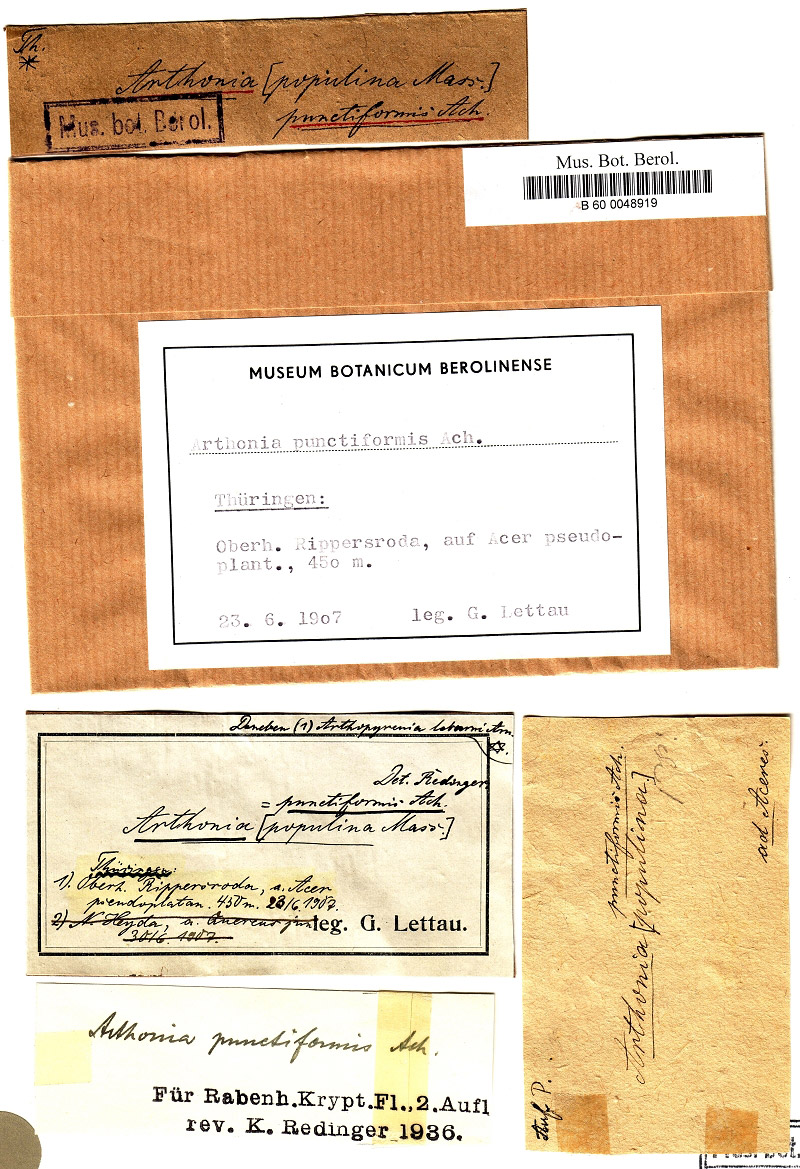 Th.
*
Arthonia [populina Mass.]
punctiformis Ach.
Mus. bot. Berol.
Mus. Bot. Berol.
B 60 0048919
MUSEUM BOTANICUM BEROLINENSE
Arthonia punctiformis Ach.
Thüringen:
Oberh. Rippersroda, auf Acer pseudo-
plant., 45o m.
23. 6. 19o7 leg. G. Lettau
Daneben (1) Arthopyrenia
Det. Redinger
= punctiformis Ach.
Arthonia [populina Mass.]
Thüringen:
1). Oberh. Rippersroda, a. Acer
pseudoplatan. 450 m. 23/6. 1907.
2) N. Heyda, a. Quercus
30/6. 1907.
leg. G. Lettau.
Arthonia punctiformis Ach.
Für Rabenh.Krypt.Fl.,2.Aufl
rev. K. Redinger 1936.
punctiformis Ach.
Arthonia [populina]
ad Aceres.
Auf P.